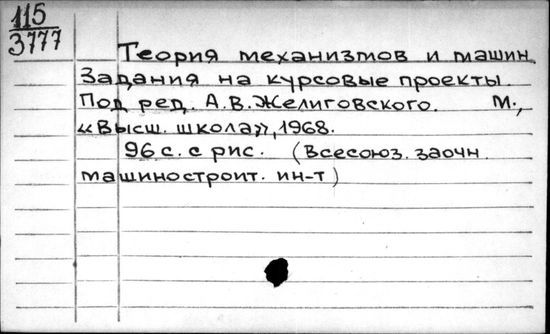 115
3777
Теория механизмов и машин.
Задания на курсовые проекты
Под ред. А.В.Желиговского. М.,
«Высш. школа», 1968.
96 с. с рис. (Всесоюз. заочн.
машиностроит. ин-т)